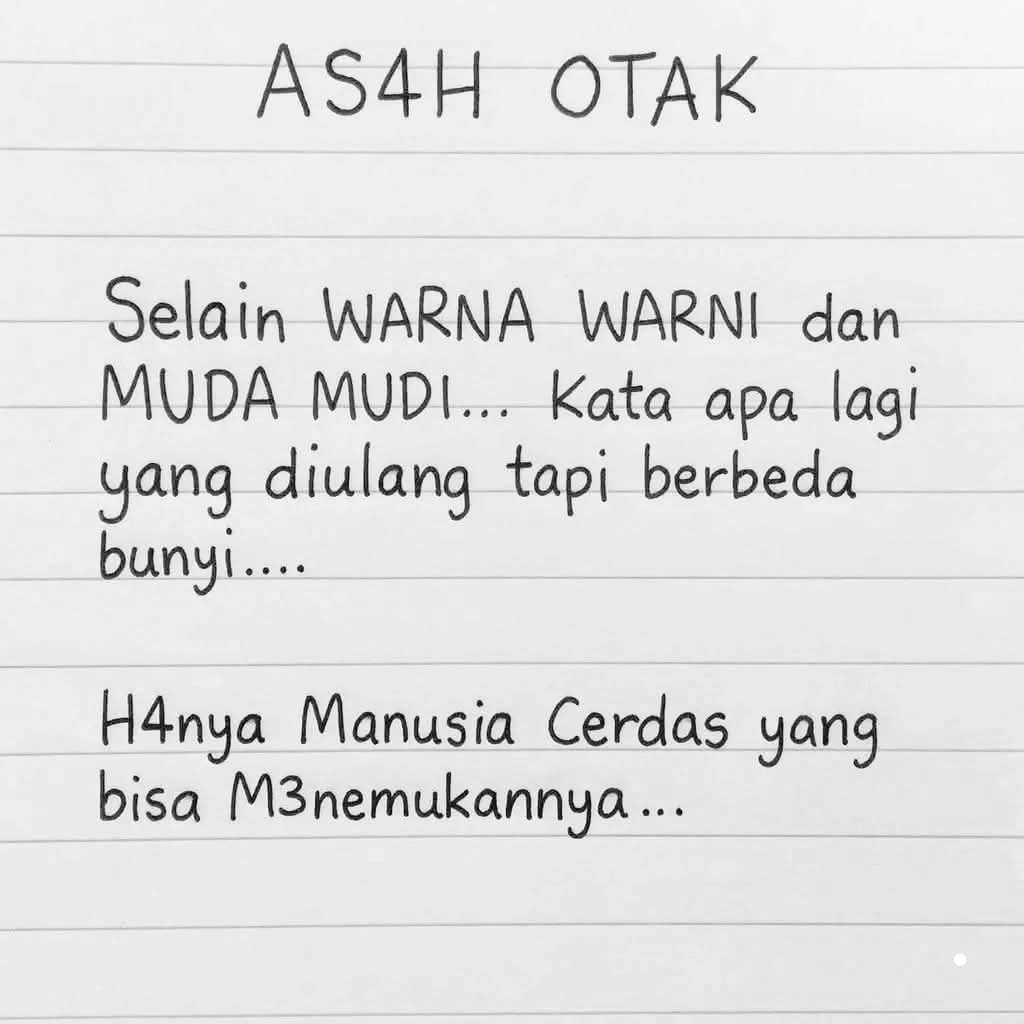 AS4H OTAK
Selain WARNA WARNI dan
MUDA MUDI... Kata apa lagi
yang diulang tapi berbeda
bunyi....
H4nya Manusia Cerdas yang
bisa M3nemukannya...